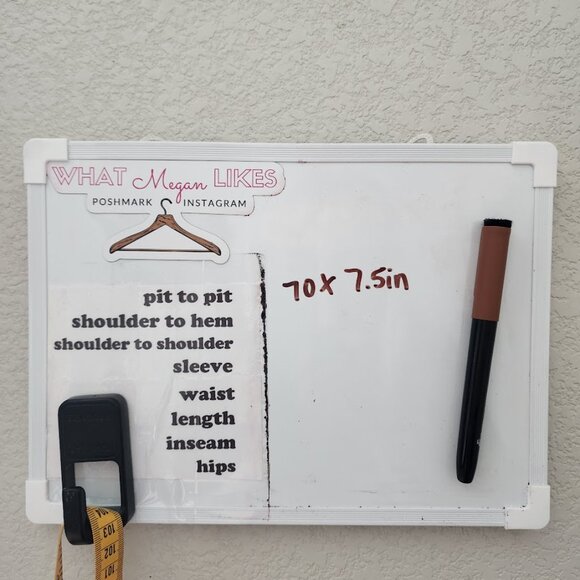 WHAT Megan LIKES
POSHMARK INSTAGRAM
pit to pit
shoulder to hem
shoulder to shoulder
sleeve
waist
length
inseam
hips
70 x 7.5in
103
102
101